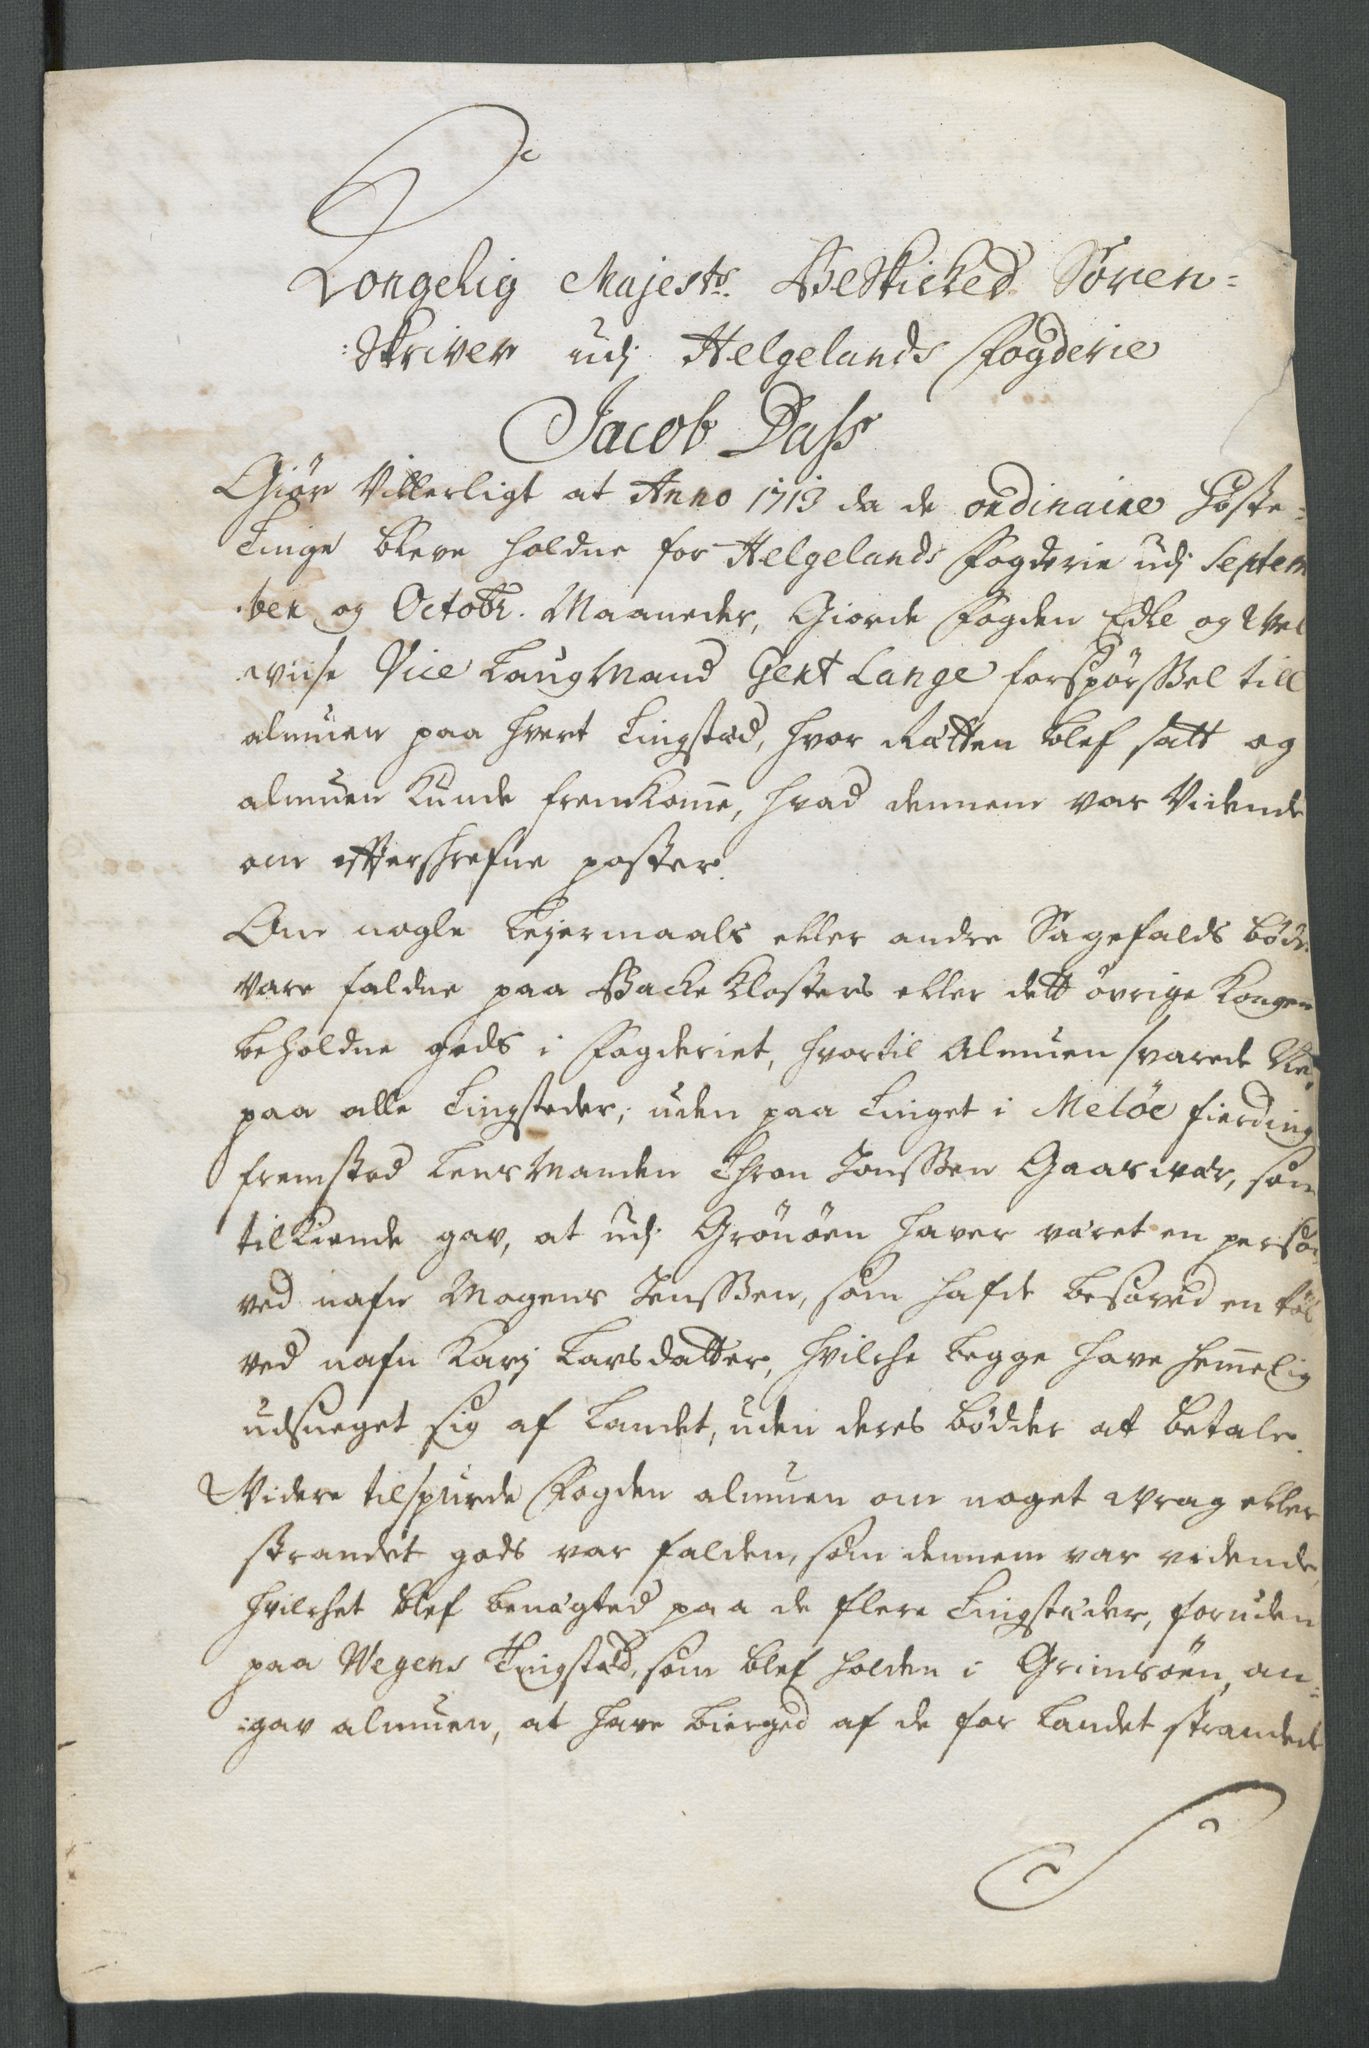 Kongelig Majests. Beskicked Soren=
:Skriver udj Helgelands Fogderie
Jacob Dass
Giör Vitterligt at Anno 1713 da de ordinaire Höste=
Tinge bleve holdne for Helgelands Fogderie udj Septem
:ber og Octobr. Maaneder, Giorde Fogden Edle og Vel
wiise Vice LaugMand Gert Lange forspörssel till
almuen paa hvert Tingstæd, hvor Rætten blef satt og
almuen kunde fremkome, hvad dennem var Vidende
om effterskrefne poster.
Om nogle Leyermaals eller andre Sagefalds bödr.
vare faldne paa Backe Klosters eller dett övrige Kongen
beholdne gods i Fogderiet, hvortil Almuen svarede Ney
paa alle Tingsteder, uden paa Tinget i Melöe fierding
fremstod LensManden Thron Jonssen Gaasvær, som
tilkiende gav, at udj Grönöen haver været en person
ved nafn Mogens Jenssen, som hafde besoved en
ved nafn Karj Larsdatter, hvilche begge have hemmelig
udsneget sig af Landet, uden deres bödder at betale.
Videre tilspurde Fogden almuen om noget wrag eller
strandet gods var falden, som dennem var vidende,
hvilchet blef benægted paa de flere Tingstæder, foruden
paa Wegens Tingstæd, som blef holden i Grimsöen, an=
:gav almuen, at have bierged af de for Landet strandede